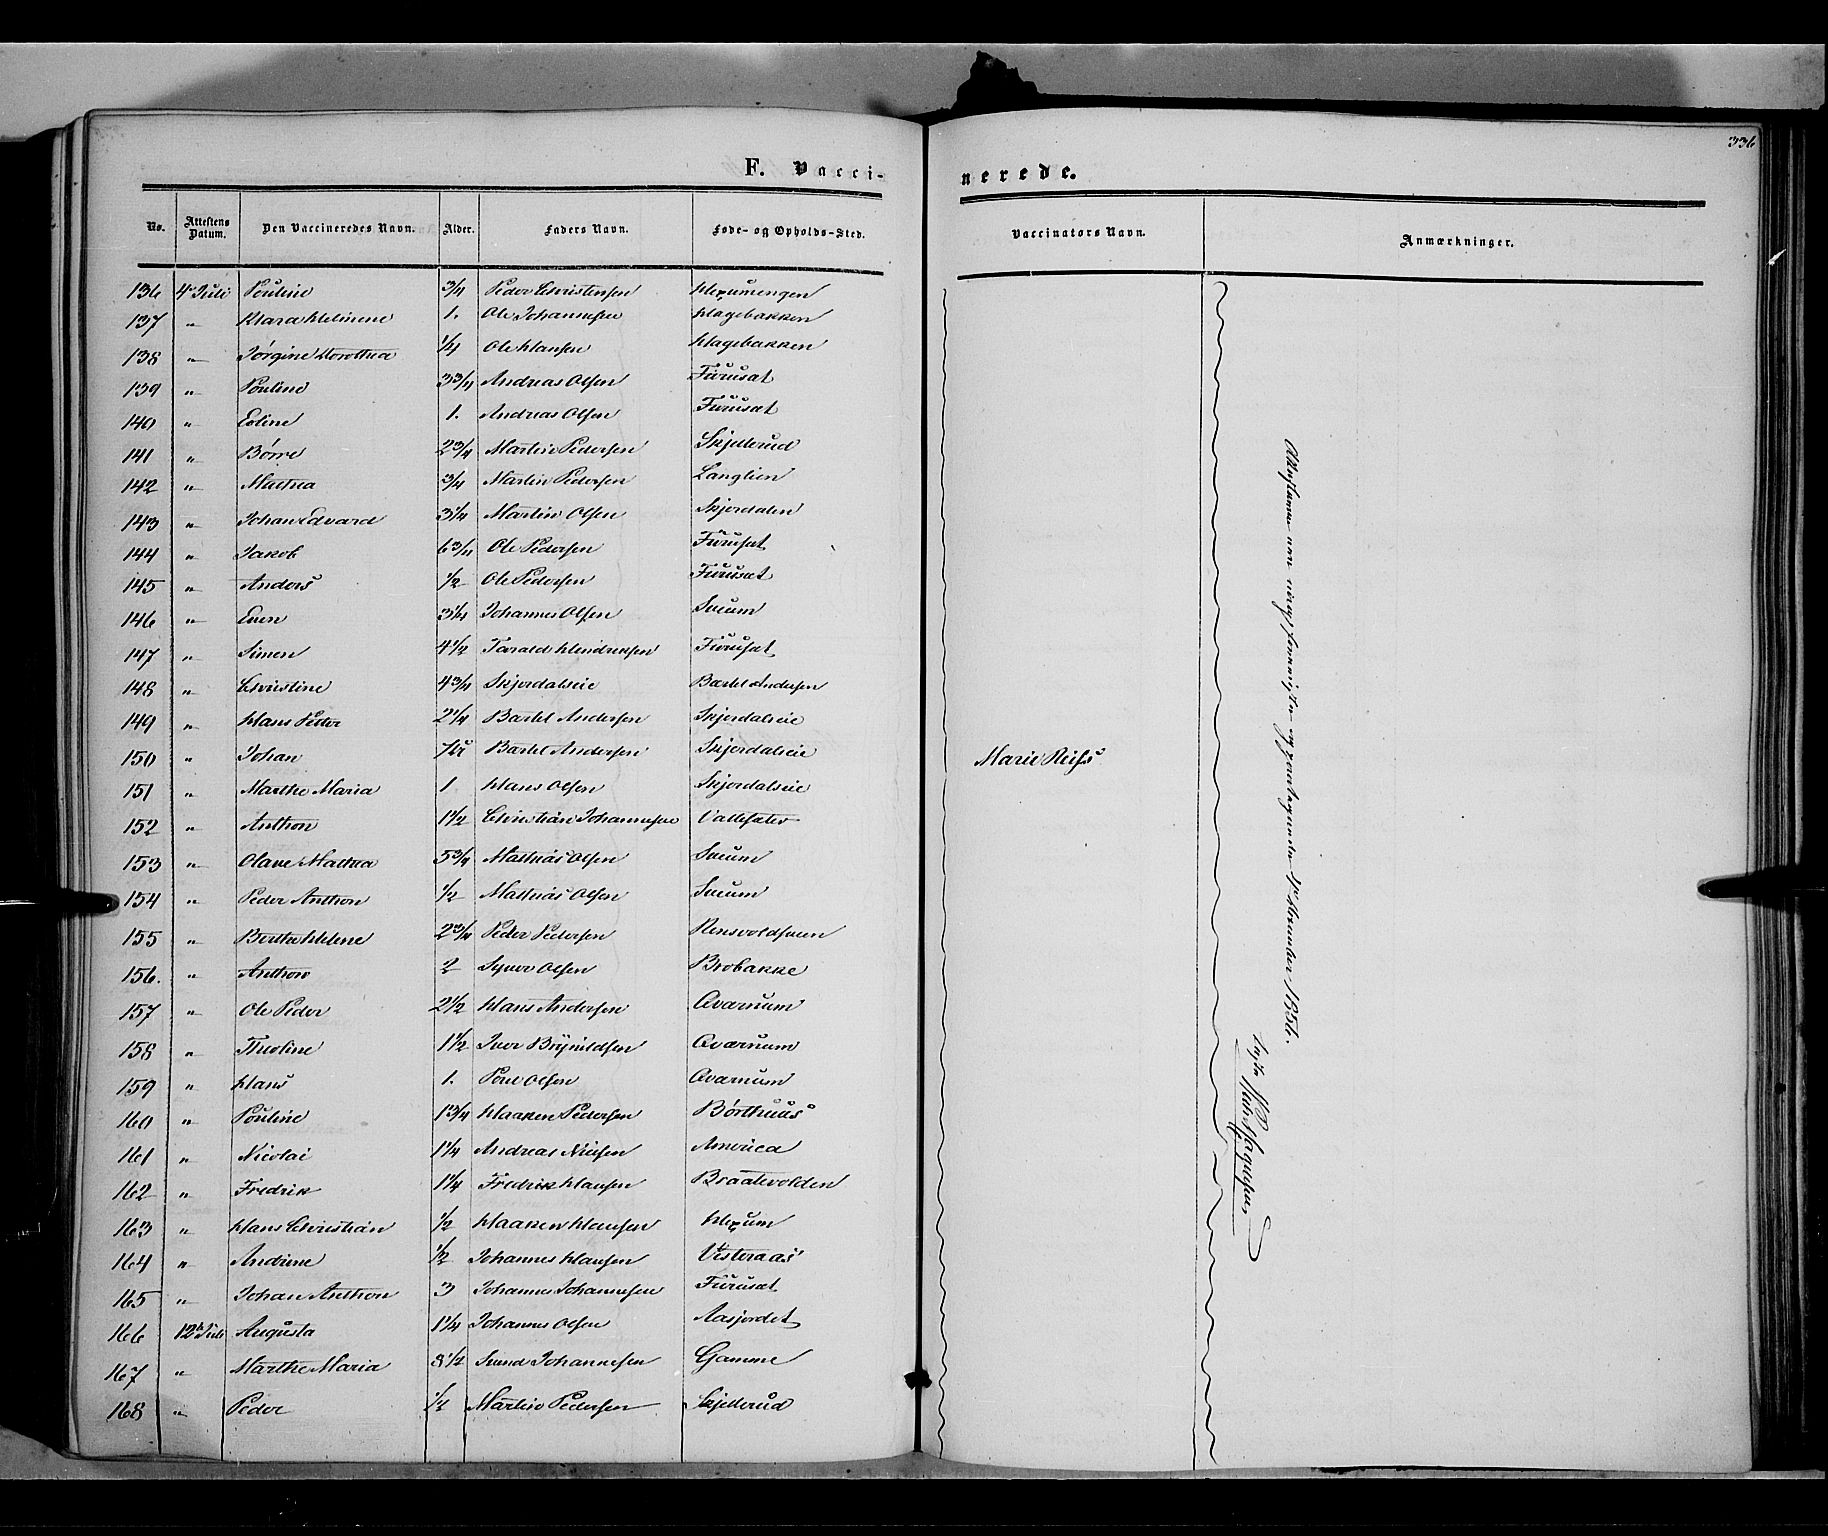 336
F. Vacci-
nerede.
No. Attestens Datum. Den Vaccineredes Navn. Alder. Faders Navn. Føde- og Opholds-Sted. Vaccinators Navn. Anmærkninger.
136 4 Juli Pouline 3/4 Peder Christensen Hexumengen
137 " Klara Helmine 1. Ole Johannesen Hagebakken
138 " Jørgine Dorothea 1/4 Ole Hansen Hagebakken
139 " Pouline 3 3/4 Andreas Olsen Furusat
140 " Eoline 1. Andreas Olsen Furusat
141 " Børre 2 3/4 Martin Pedersen Skjellerud
142 " Mathea 3/4 Martin Pedersen Langlien
143 " Johan Edvard 3 1/4 Martin Olsen Skjerdalen
144 " Jakob 6 3/4 Ole Pedersen Furusat
145 " Anders 1/2 Ole Pedersen Furusat
146 " Even 3 1/4 Johannes Olsen Sveum
147 " Simen 4 1/2 Tarald Hendriksen Furusat
148 " Christine 4 3/4 Skjerdalseie Bartel Andersen
149 " Hans Peder 2 1/4 Bartel Andersen Skjerdalseie
150 " Johan Bartel Andersen Skjerdalseie Marie Reiss
151 " Marthe Maria 1 Hans Olsen Skjerdalseie
152 " Anthon 1 1/2 Christian Johannesen
153 " Olave Mathea 5 3/4 Mathias Olsen Sveum
154 " Peder Anthon 1/2 Mathias Olsen Sveum
155 " Berthe Helene 2 3/4 Peder Pedersen Rensvoldsveen
156. " Anthon 2 Syver Olsen Brobakke
157 " Ole Peder 2 1/2 Hans Andersen Qvarnum
158 " Theoline 1 1/2 Iver Brynildsen Qværnum
159 " Hans 1. Poul Olsen Qvarnum
160 " Pouline 1 3/4 Haaken Pedersen Børthuus
161 " Nicolai 1 1/4 Andreas Nilsen America
162 " Fredrik 1 1/4 Fredrik Hansen Braatevolden
163 " Hans Christian 1/2 Haaken Hansen Hexum
164 " Andrine 1/2 Johannes Hansen Visteraas
165 " Johan Anthon 3 Johannes Johannesen Furusat
166 12 Juli Augusta 1 1/4 Johannes Olsen Aasjordet
167 " Marthe Maria 8 1/2 Svend Johannesen Gamme
168 " Peder Martin Pedersen Skjellerud
1856.